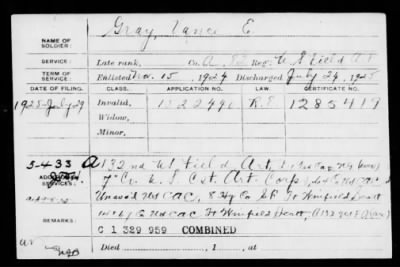 NAME OF SOLDIER: Gray, Vance E.
SERVICE: Late rank, Co. A, 82 Reg. U S Field Art
TERM OF SERVICE: Enlisted Nov. 15, 1924 Discharged July 24, 1925
DATE OF FILING. CLASS. APPLICATION NO. LAW. CERTIFICATE NO.
1925-July 29 Invalid, 1522490 R.E. 1285419
Widow,
Minor,
5-4-33 A 132 nd Field Art,
ADDITIONAL SERVICES: 7" Co. U. S. Cst. Art. Corps, 64 Co
Unassd U S CAC, 8 Hq Co S.F. Ft Winfield Scott
REMARKS: Hq Co Ft Winfield Scott,
C 1 329 959 COMBINED
Died , 1 , at